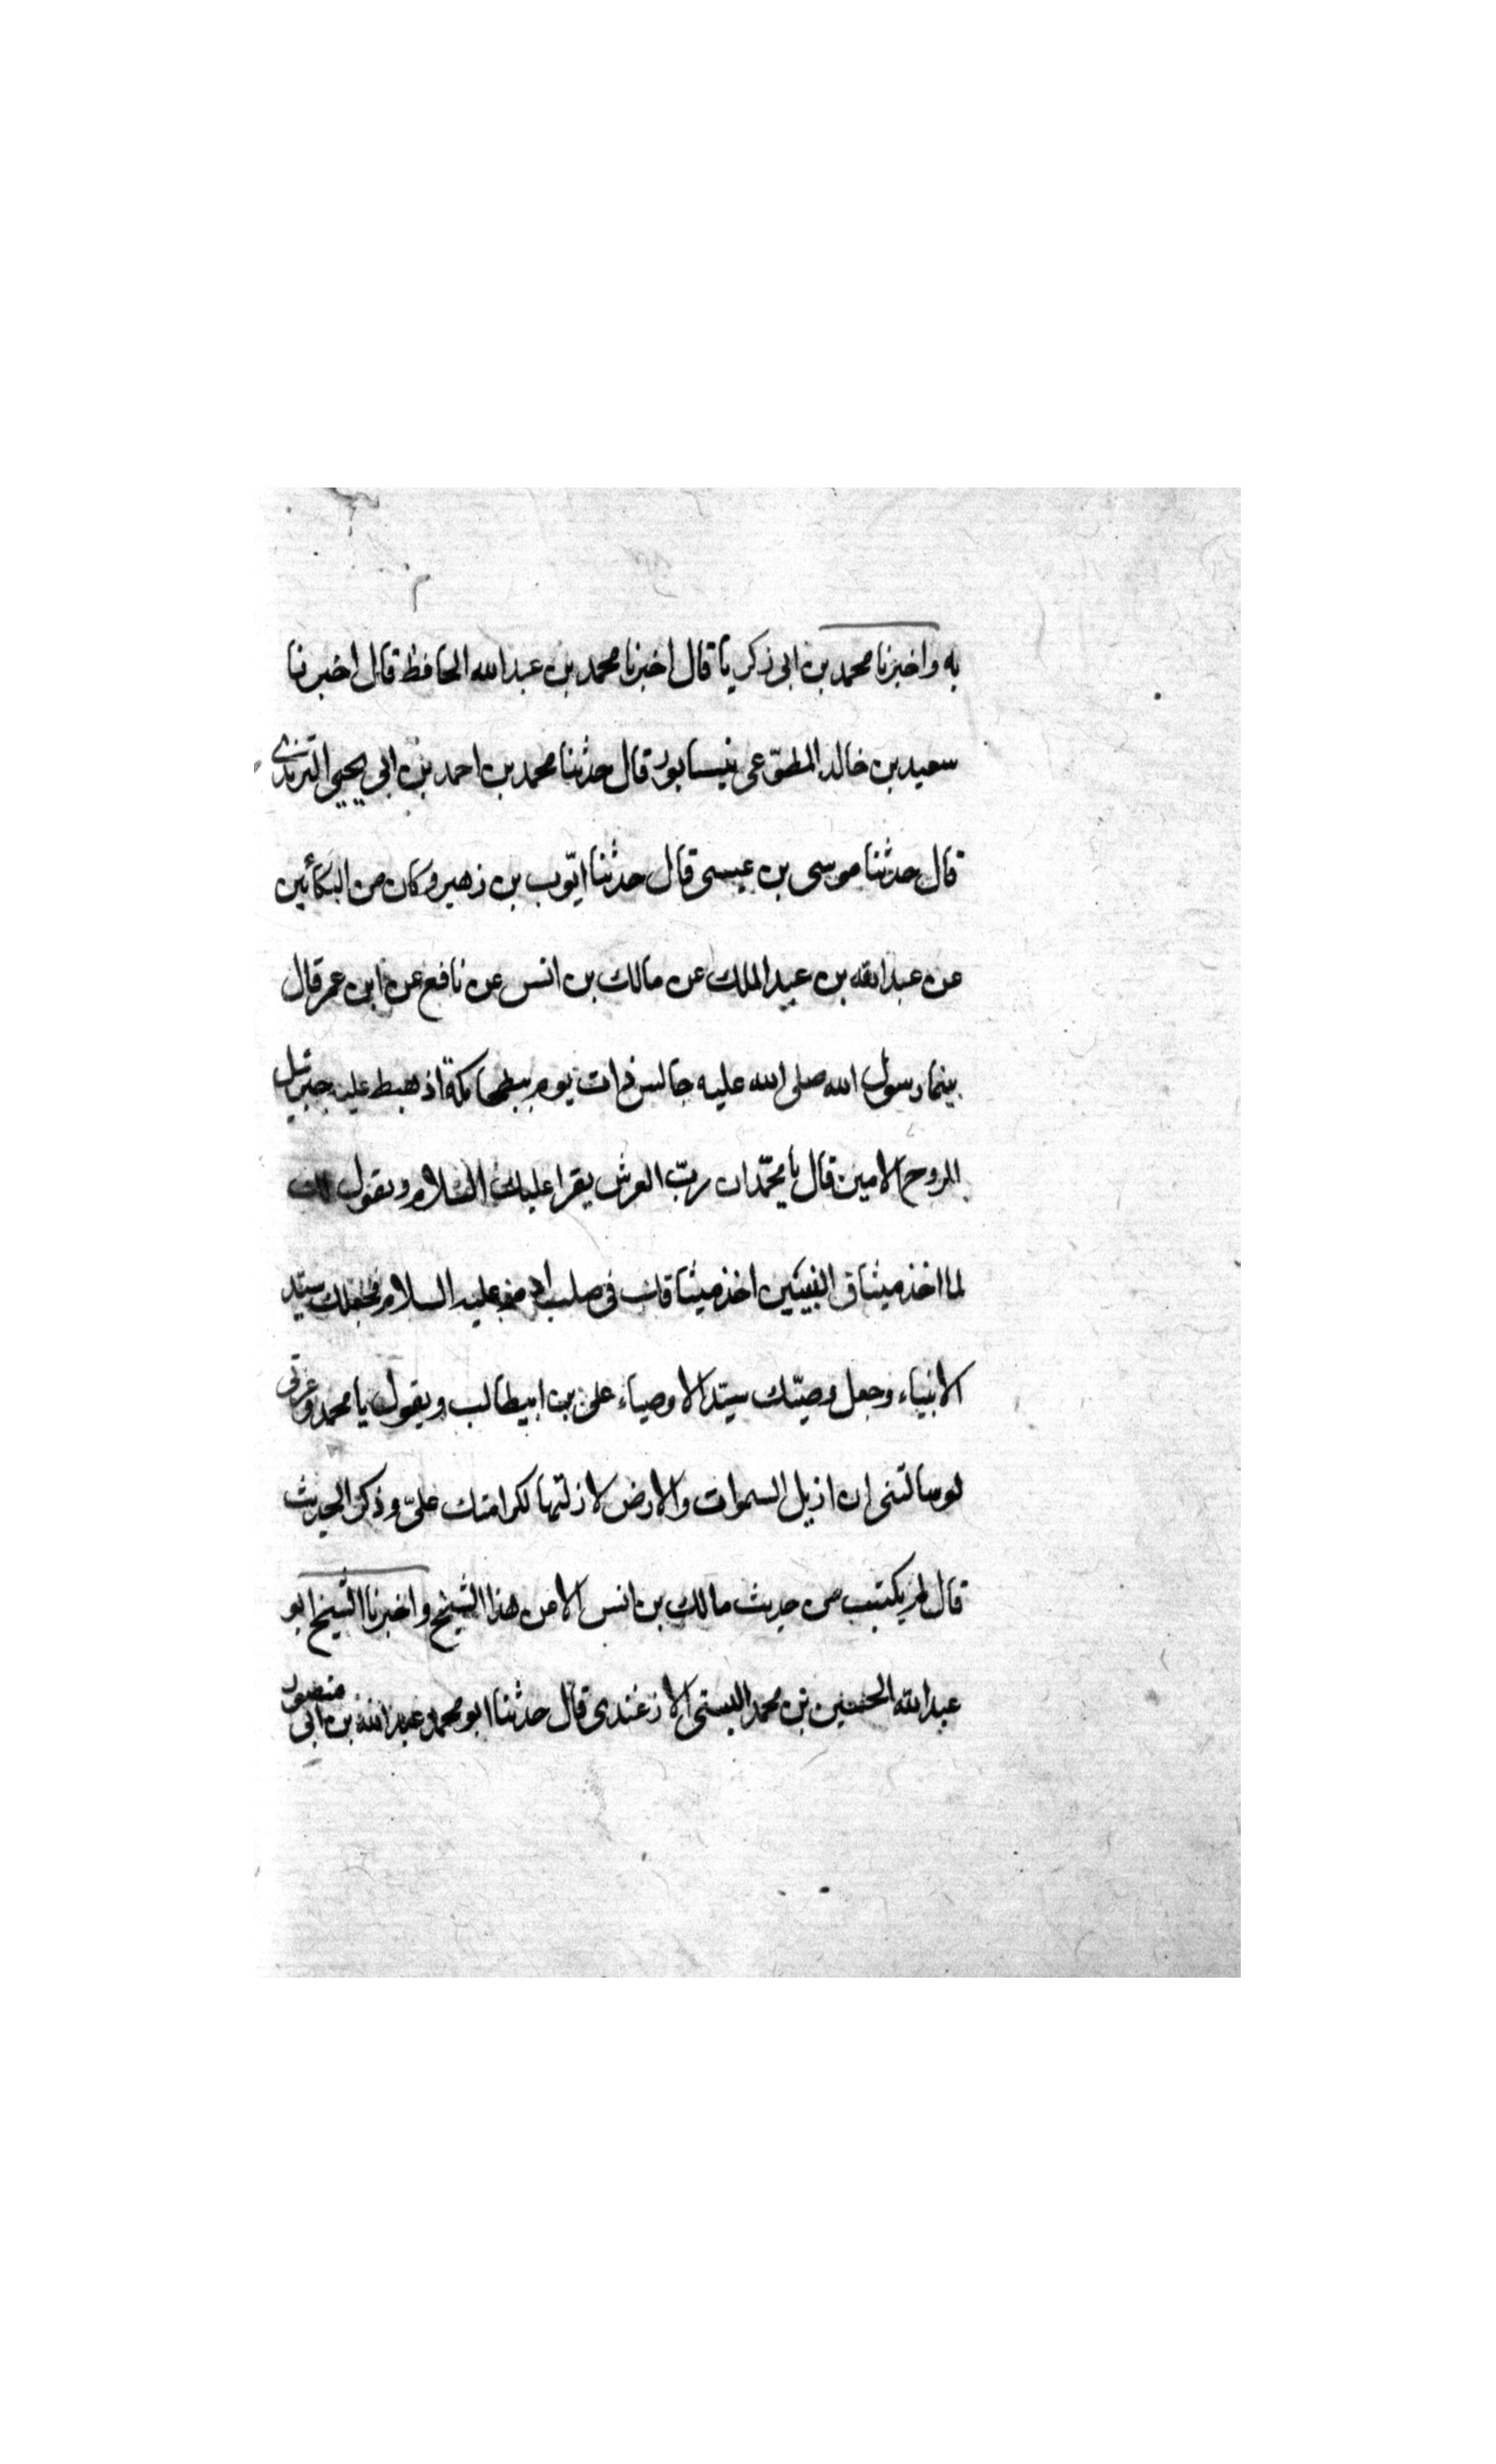 به واخبرنا محمد بن ابی زکریا قال اخبرنا محمد بن عبدالله الحافظ قال اخبرنا
سعید بن خالد المطوّعی نیسابور قال حدثنا محمد بن احمد بن ابی یحیی
قال حدثنا موسی بن عیسی قال حدثنا ایّوب بن زهیر وکان من البکائین
عن عبدالله بن عبدالملک عن مالک بن انس عن نافع عن ابن عمر قال
بینما رسول الله صلی الله علیه جالس ذات یوم ببطحا مکة اذ هبط علیه جبرئیل
الروح الامین قال یا محمّد ان ربّ العرش یقرا علیک السّلام ویقول لک
لما اخذ میثاق النبیّین اخذ میثاقک فی صلب ادم علیه السلام فجعلک سیّد
الانبیاء وجعل وصیّک سیّد الاوصیاء علی بن ابیطالب ویقول یا محمد وعزتی
لو سالتنی ان ازیل السموات والارض لازلتها لکرامتک علیّ وذکر الحدیث
قال لم یکتب من حدیث مالک بن انس الا عن هذا الشیخ واخبرنا الشیخ ابو
عبدالله الحسین بن محمد البستی الازغندی قال حدثنا ابو محمد عبدالله بن ابی منصور